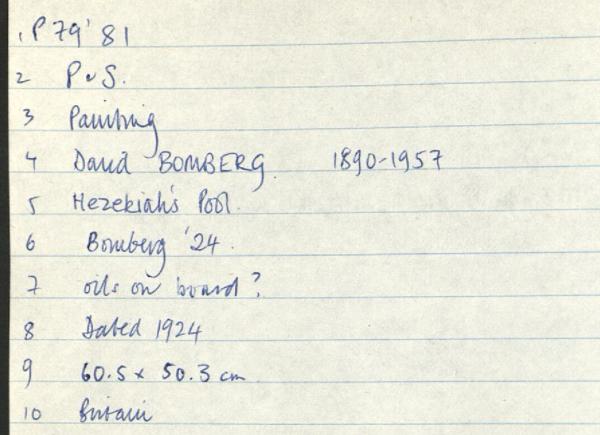 1 P 79' 81
2 P&S.
3 Painting
4 David BOMBERG. 1890-1957
5 Hezekiah's Pool.
6 Bomberg '24.
7 oils on board?
8 Dated 1924
9 60.5 x 50.3 cm
10 Britain